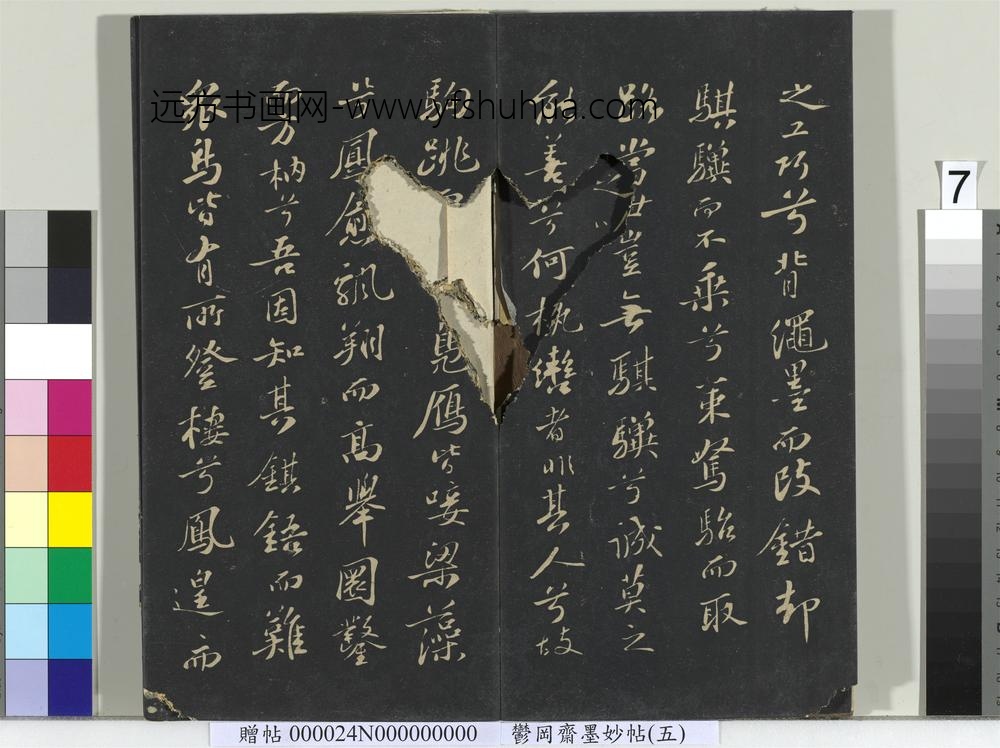 之工巧兮背繩墨而改錯却
騏驥而不乘兮策駑駘而取
路當世豈無騏驥兮誠莫之
能善兮何執轡者非其人兮故
駒跳鳧雁皆唼梁藻
兮鳳愈飄翔而高舉圜鑿
方枘兮吾固知其鉏鋙而難
衆鳥皆有所登棲兮鳳遑而
远方书画网-www.yfshuhua.com
7
贈帖 000024N000000000 鬱岡齋墨妙帖(五)